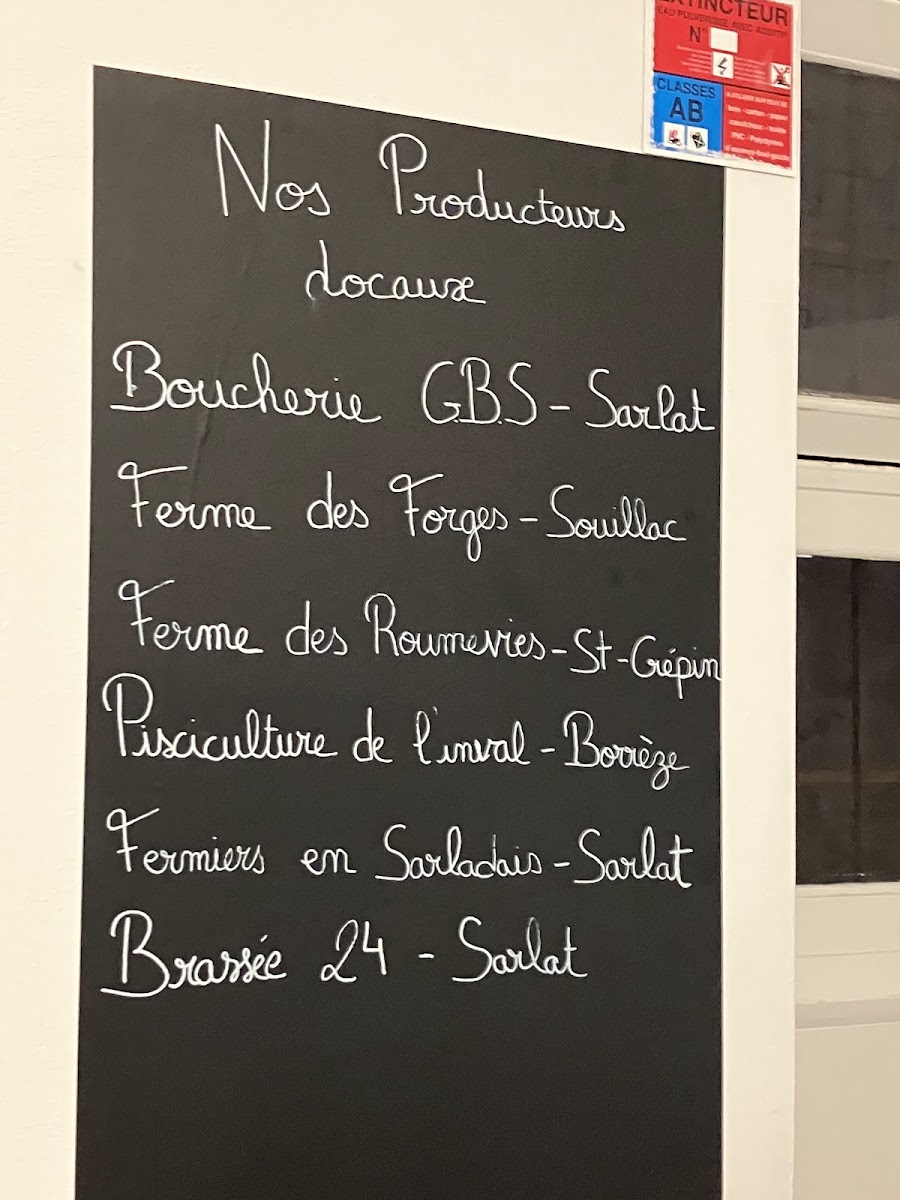 EXTINCTEUR
EAU PULVERISEE AVEC ADDITIF
N°
CLASSES
AB
Nos Producteurs
Locaux
Boucherie G.B.S - Sarlat
Ferme des Forges - Souillac
Ferme des Roumevies - St-Crépin
Pisciculture de l'inval - Borrèze
Fermiers en Sarladais - Sarlat
Brassée 24 - Sarlat